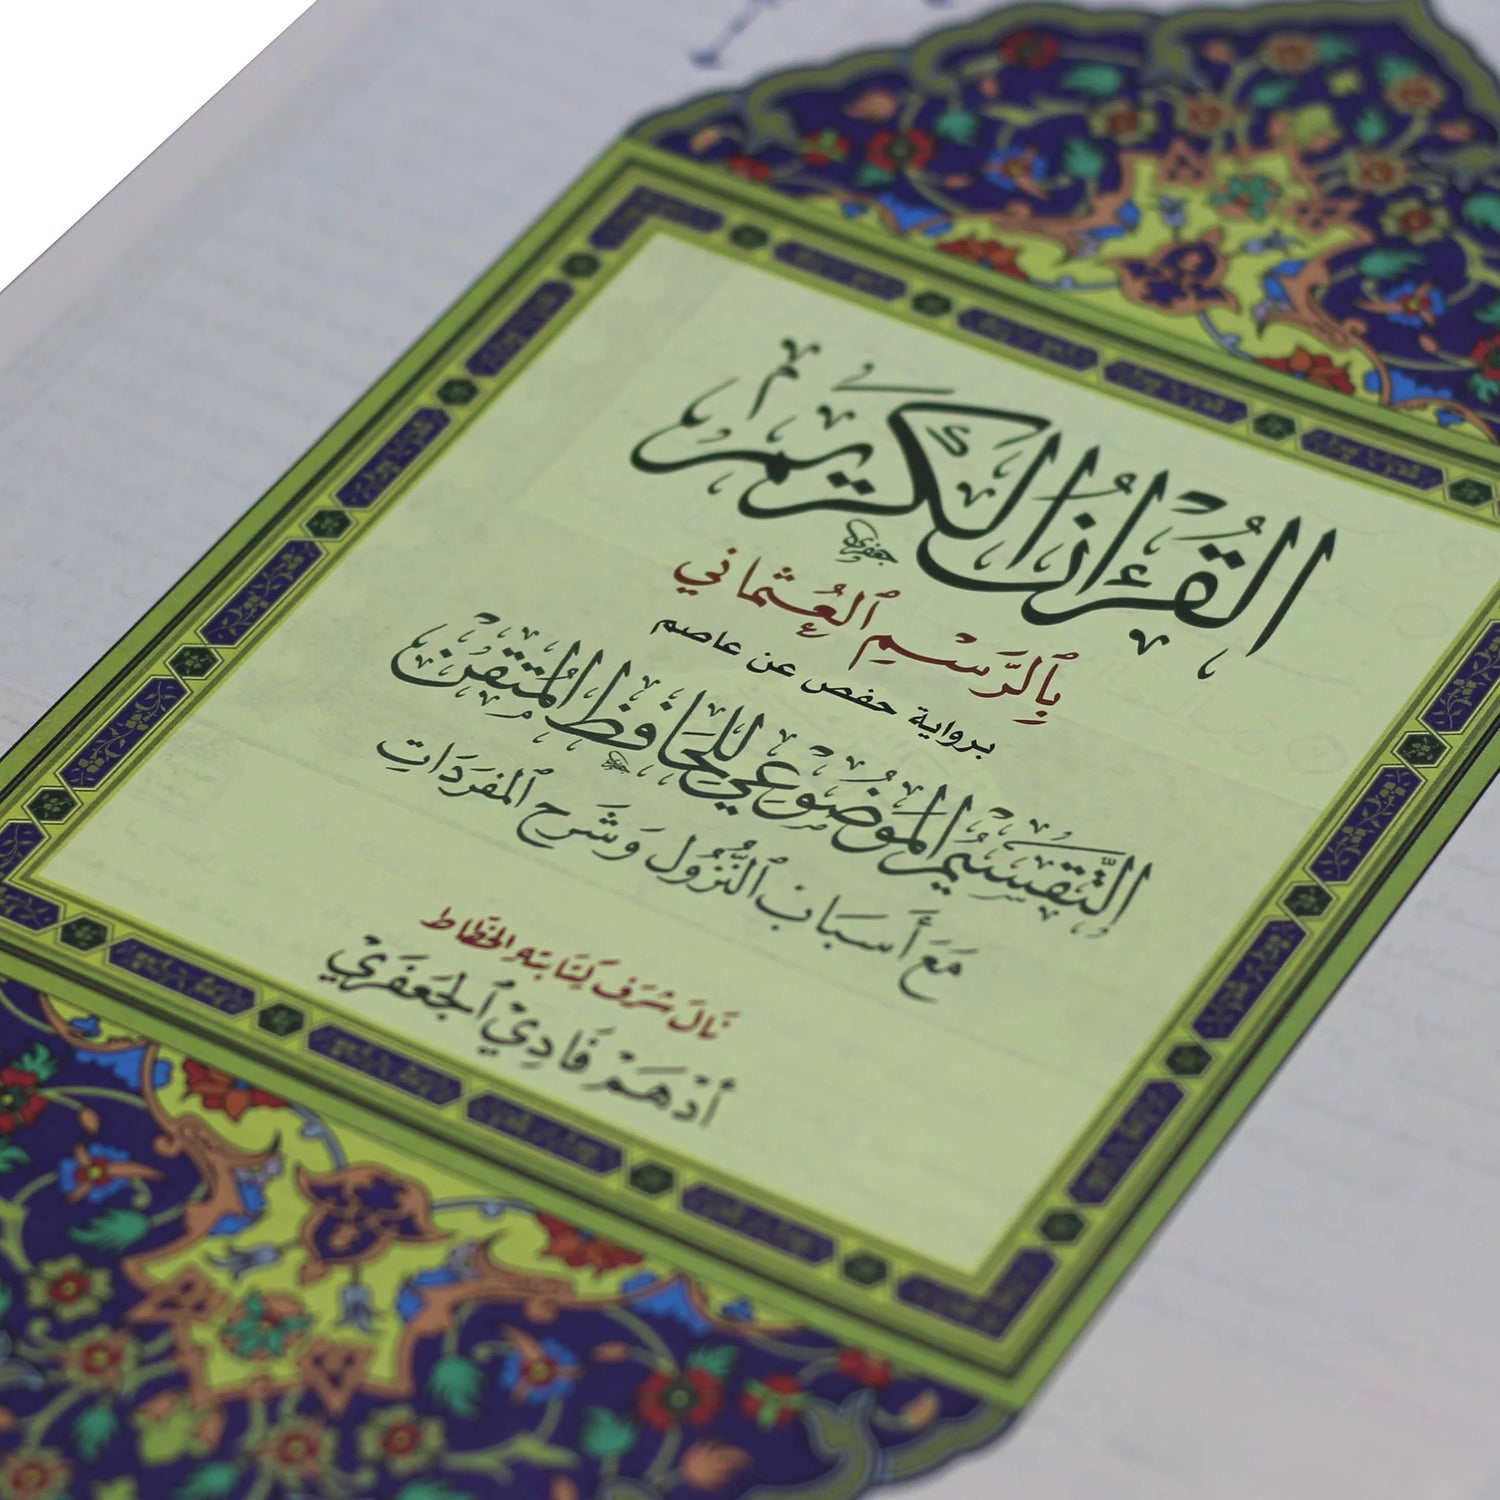 القُرْءَانُ الكَرِيمُ
بِٱلرَّسْمِ ٱلعُثْمَانِي
برواية حفص عن عاصم
التَّقْسِيمُ المَوْضُوعِي لِلحَافِظِ المُتْقِنِ
مَعَ أَسبَابِ ٱلنُّزُولِ وَشَرحِ ٱلمُفرَدَاتِ
نَالَ شَرَفَ كِتَابَتِهِ الخَطَّاط
أَدْهَمْ فَادِيْ ٱلجَعفَرِيْ